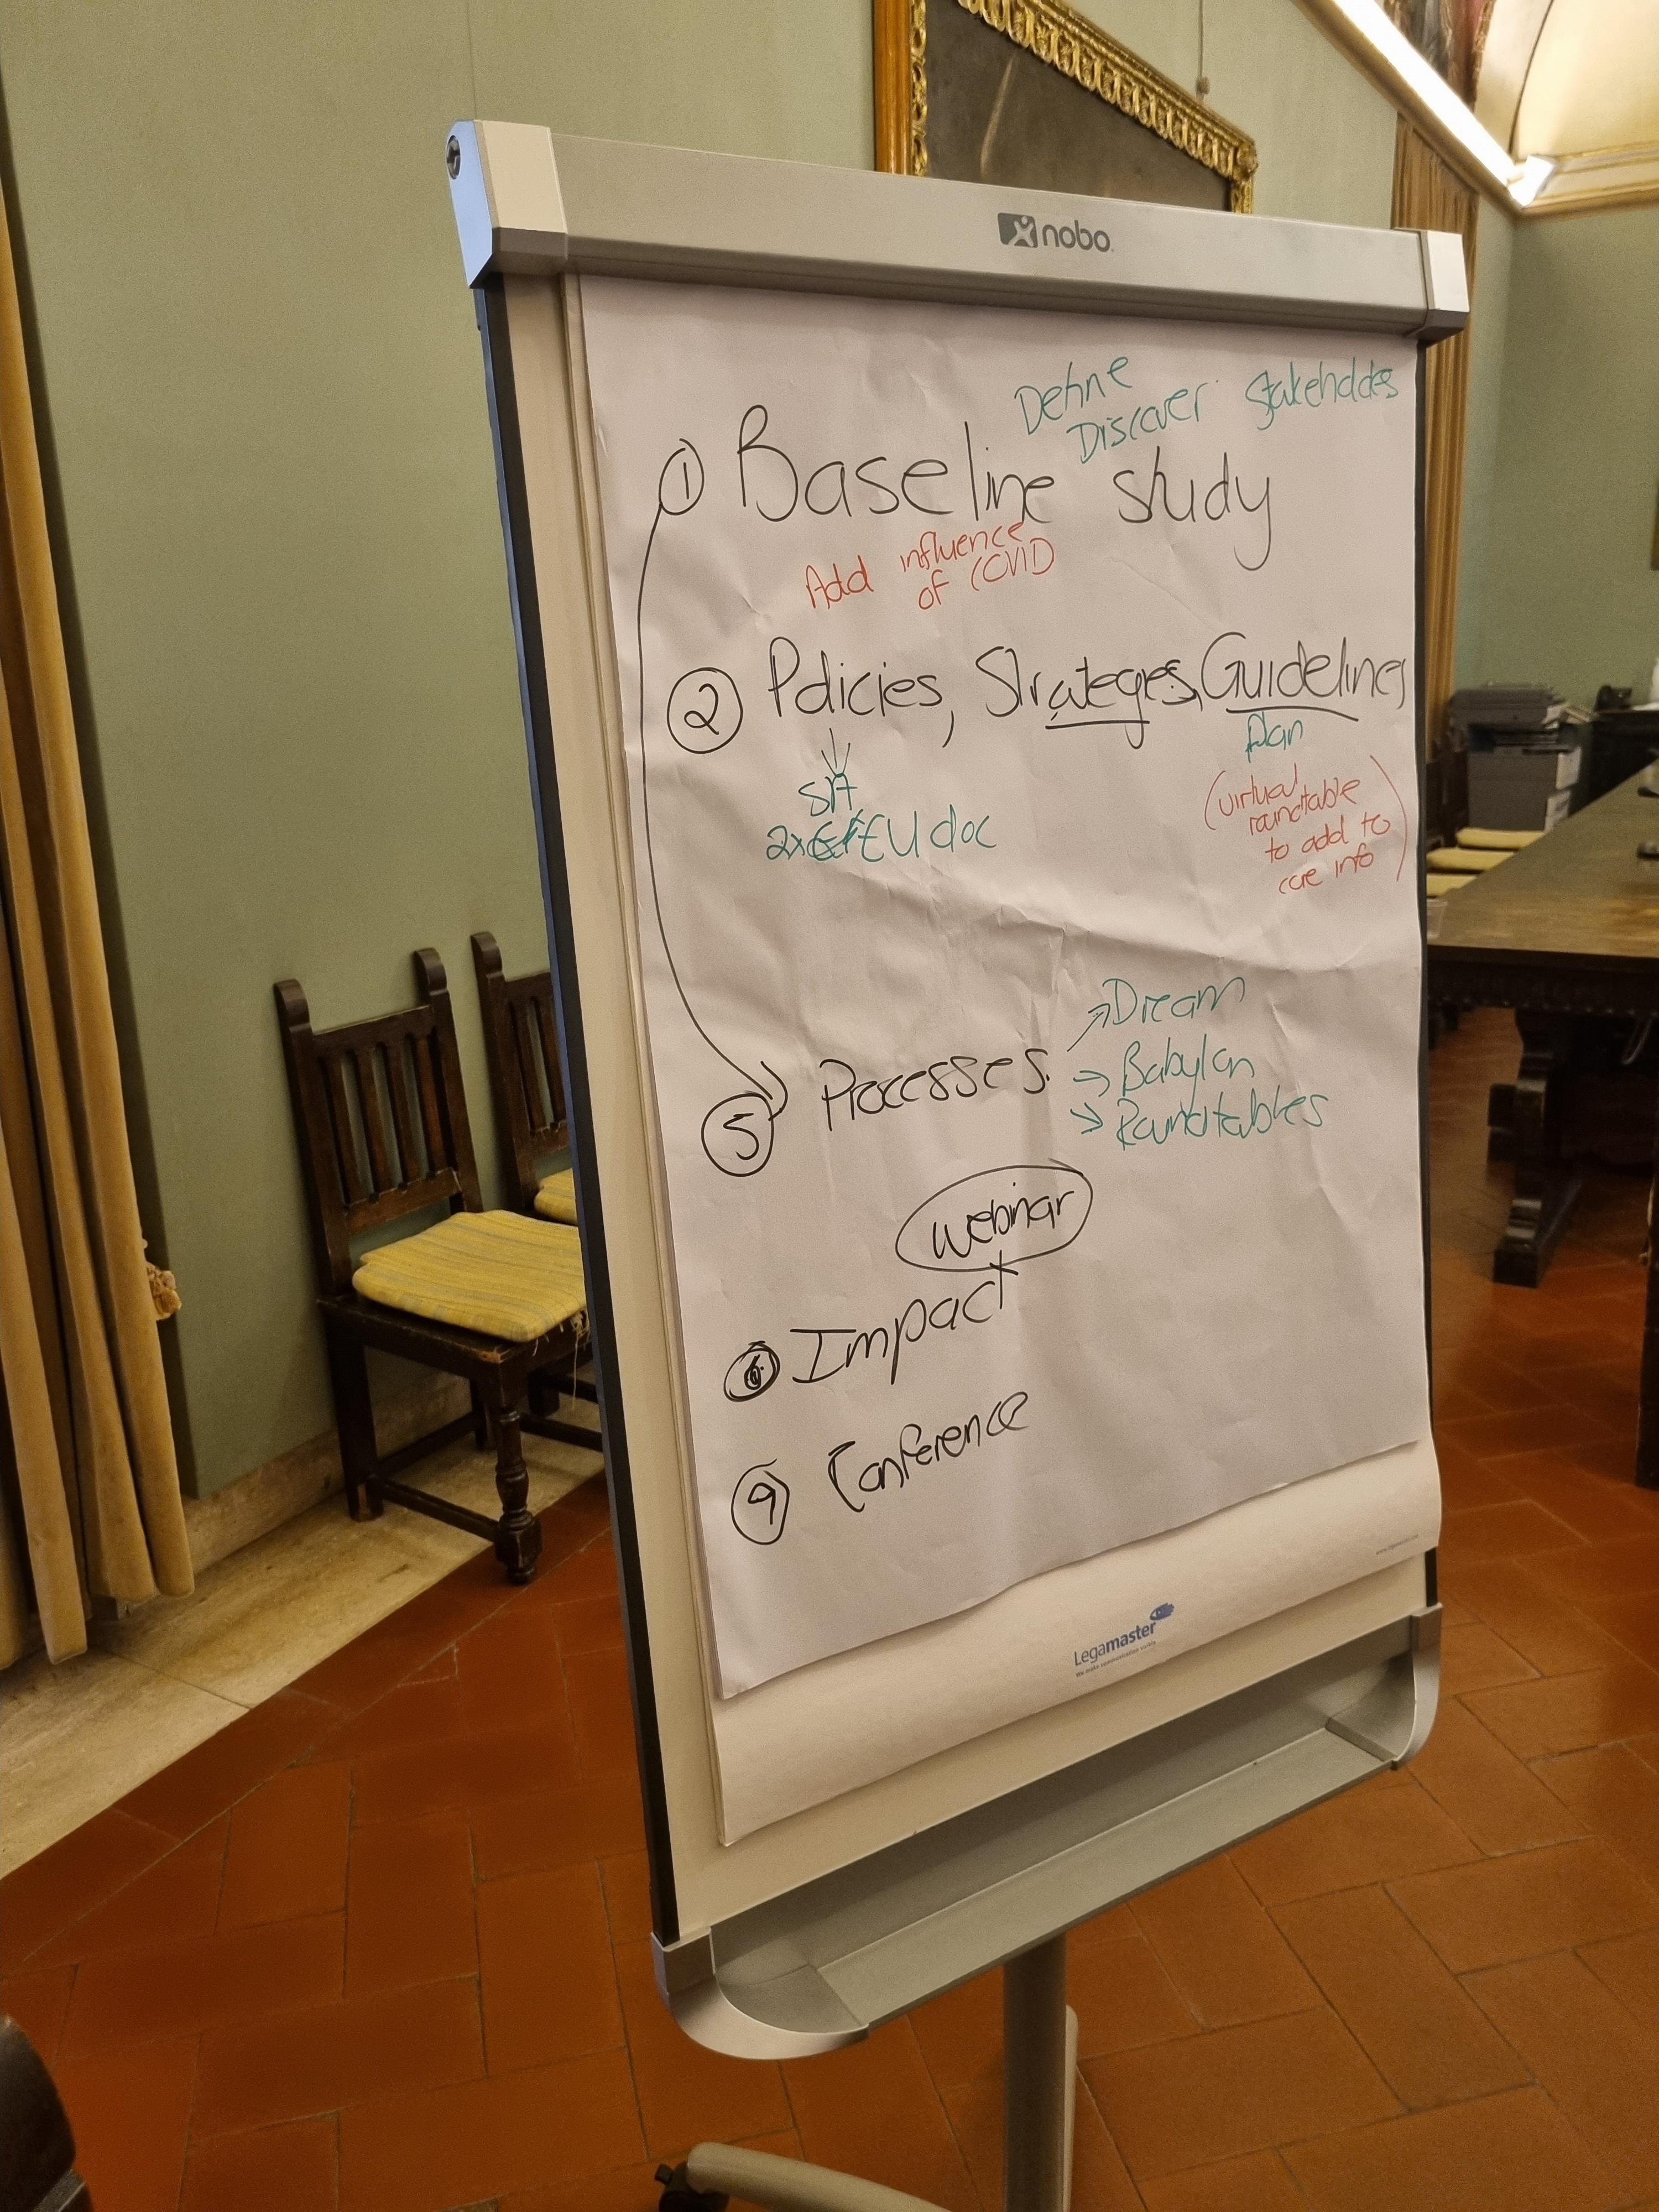 nobo
Define
Discover Stakeholders
1 Baseline study
Add influence
of COVID
2 Policies, Strategies, Guidelines
Plan
2x EU doc
(virtual
roundtable
to add to
core info)
Dream
5 Processes
Babylon
Roundtables
webinar
6 Impact
9 Conference
Legamaster
We make communication visible